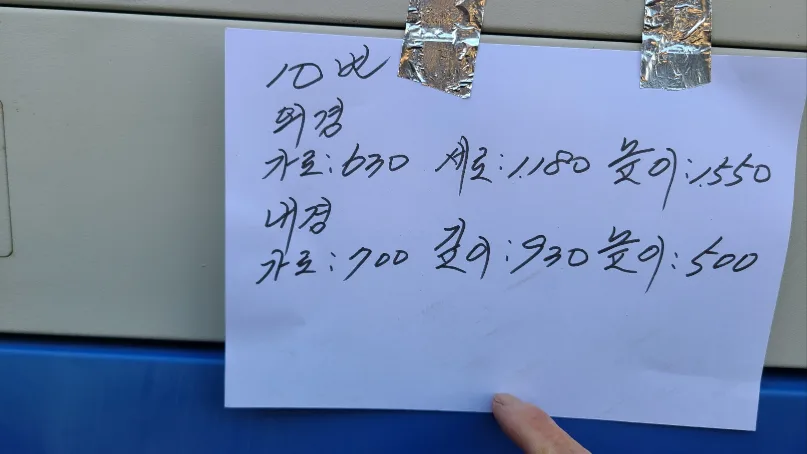 10번
외경
가로:630 세로:1.180 높이:1.550
내경
가로:700 깊이:930 높이:500